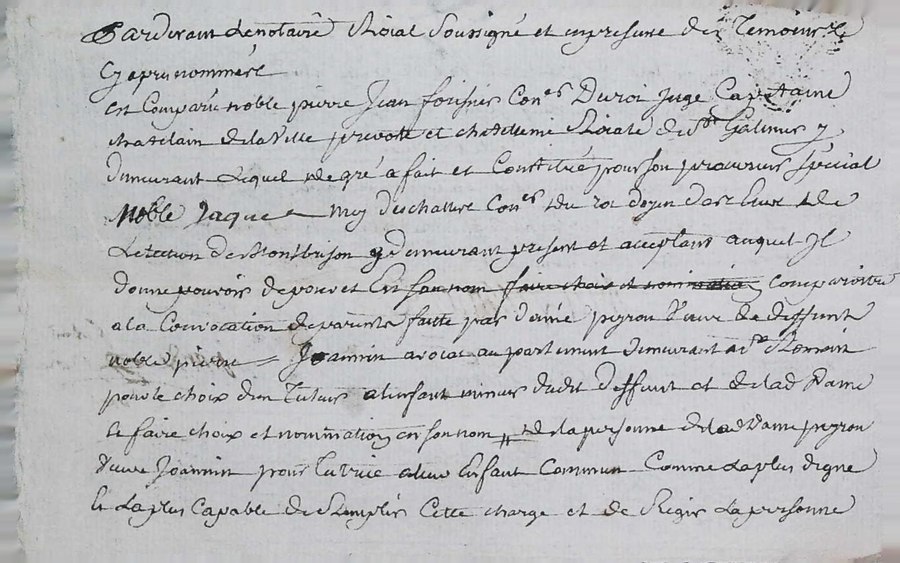 Pardevant Le notaire Roial Soussigné et en presence des Temoins
Cy apres nommés
est Comparu noble pierre Jean forisnier Con.er Du roi Juge Capitaine
chatelain de la Ville prevoté et chatelenie Roiale de S.t Galmier y
demeurant Lequel de gré a fait et Constitué pour son procureur spécial
Noble Jaque mey deschalles Con.er du roi doyen des Elus de
L'election de Montbrison y demeurant present et acceptant auquel Il
donne pouvoir de pour et En son nom faire choix et nomination comparoitre
a la Convocation de parents faitte par dame peyron Veuve de deffunt
noble pierre Joannin avocat au parlement demeurant a S.t Romain
pour le choix d'un Tuteur a l'enfant mineur dudit deffunt et de lad. Dame
Et faire choix et nomination en son nom de la personne de lad. Dame peyron
Veuve Joannin pour Tutrice a leur Enfant Commun Comme La plus digne
Et La plus Capable de Remplir Cette charge et de Regir La personne